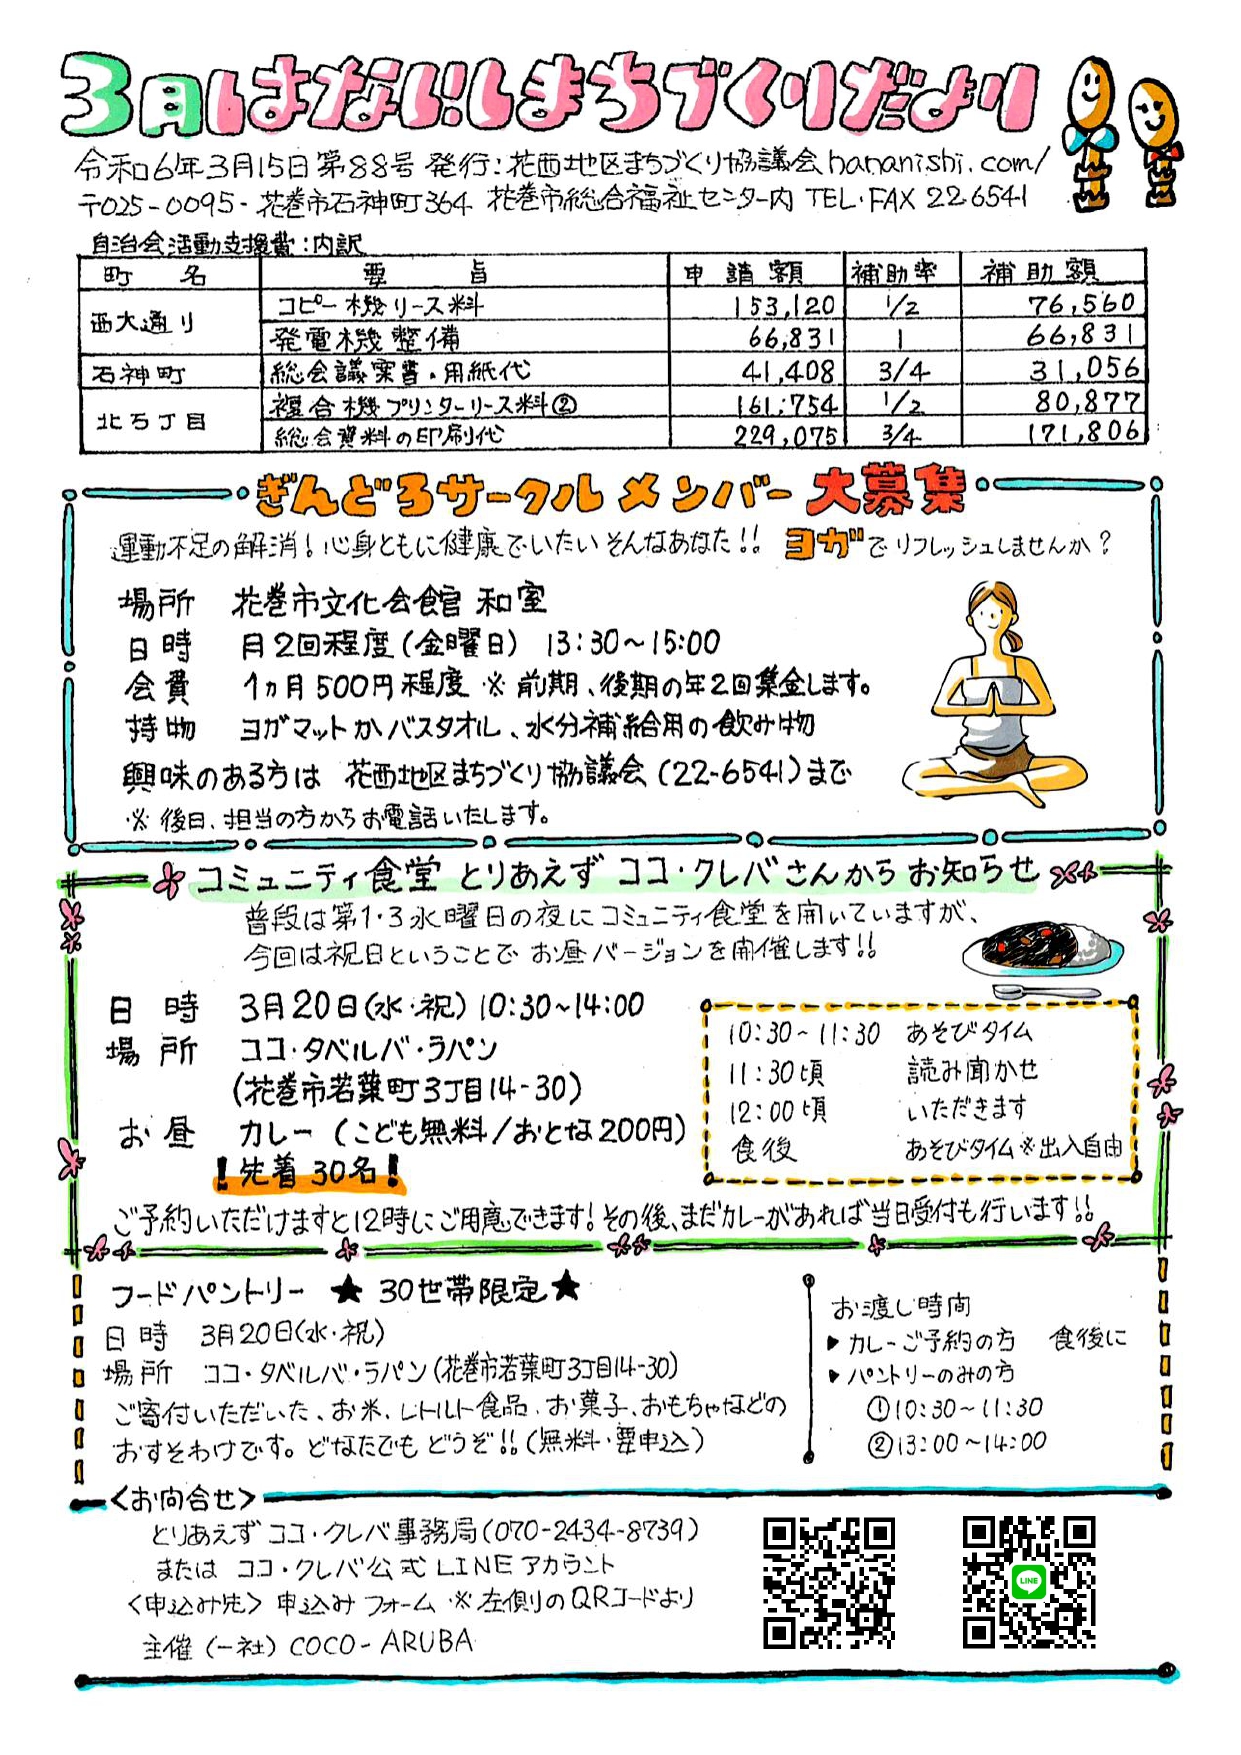 3月はないしまちづくりだより
令和6年3月15日 第88号 発行:花西地区まちづくり協議会 hananishi.com/
〒025-0095・花巻市石神町364 花巻市総合福祉センター内 TEL・FAX 22-6541
自治会活動支援費:内訳
町名 要旨 申請額 補助率 補助額
西大通り コピー機リース料 153,120 1/2 76,560
発電機整備 66,831 1 66,831
石神町 総会議案書・用紙代 41,408 3/4 31,056
北5丁目 複合機プリンターリース料② 161,754 1/2 80,877
総会資料の印刷代 229,075 3/4 171,806
ぎんどろサークル メンバー 大募集
運動不足の解消!心身ともに健康でいたい そんなあなた!! ヨガでリフレッシュしませんか?
場所 花巻市文化会館 和室
日時 月2回程度(金曜日) 13:30~15:00
会費 1ヵ月500円程度 ※前期、後期の年2回集金します。
持物 ヨガマットかバスタオル、水分補給用の飲み物
興味のある方は 花西地区まちづくり協議会(22-6541)まで
※後日、担当の方からお電話いたします。
コミュニティ食堂 とりあえず ココ・クレバさんから お知らせ
普段は第1・3水曜日の夜にコミュニティ食堂を開いていますが、
今回は祝日ということで お昼バージョンを開催します!!
日時 3月20日(水・祝)10:30~14:00
場所 ココ・タベルバ・ラパン
(花巻市若葉町3丁目14-30)
お昼 カレー(こども無料/おとな200円)
!先着30名!
10:30~11:30 あそびタイム
11:30頃 読み聞かせ
12:00頃 いただきます
食後 あそびタイム※出入自由
ご予約いただけますと12時にご用意できます!その後、まだカレーがあれば当日受付も行います!!
フードパントリー ★30世帯限定★
日時 3月20日(水・祝)
場所 ココ・タベルバ・ラパン(花巻市若葉町3丁目14-30)
ご寄付いただいた、お米、レトルト食品、お菓子、おもちゃなどの
おすそわけです。どなたでもどうぞ!!(無料・要申込)
お渡し時間
▶カレーご予約の方 食後に
▶パントリーのみの方
①10:30~11:30
②13:00~14:00
<お問合せ>
とりあえず ココ・クレバ事務局(070-2434-8739)
または ココ・クレバ公式LINEアカウント
<申込み先> 申込みフォーム ※左側のQRコードより
主催(一社)COCO-ARUBA
LINE